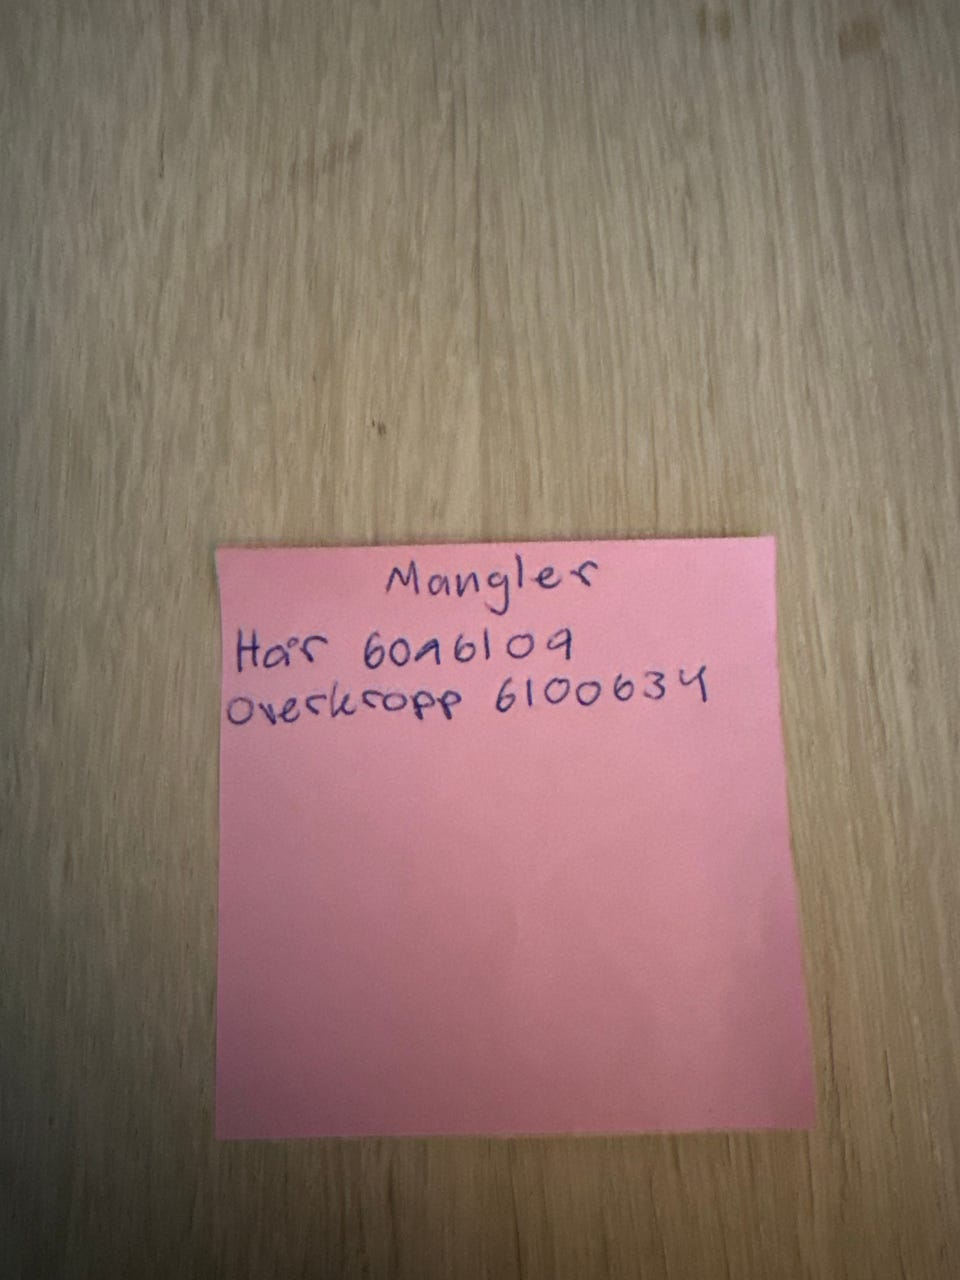 Mangler
Hår 6096109
Overkropp 6100634